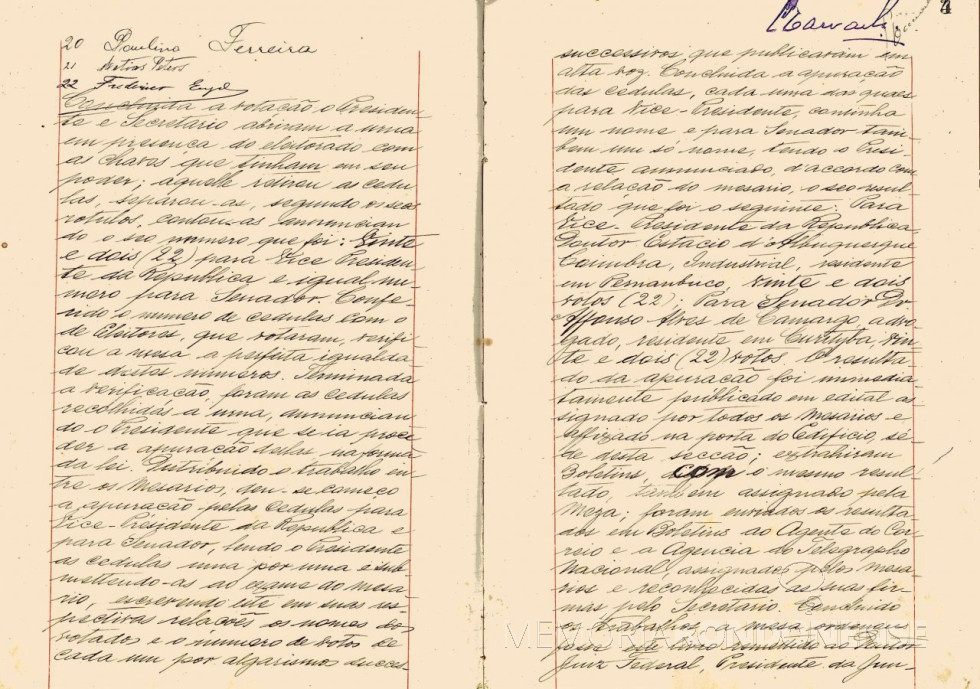 20 Paulino Ferreira
21 Peters
22 Frederico
Concluida a votação o Presiden-
te e Secretario abriram a urna
em presença do eleitorado com
as chaves que tinham em seu
poder; aquelle retirou as cedu-
las, separou-as, segundo os seos
rotulos, contou-as annuncian-
do o seo numero que foi: Vinte
e dois (22) para Vice Presiden-
te da Republica e igual nu-
mero para Senador. Confe-
rido o numero de cedulas com o
de Eleitores, que votaram, verifi-
cou a mesa a perfeita igualdade
de destes numeros. Terminada
a verificação, foram as cedulas
recolhidas a urna, annuncian-
do o Presidente que se ia proce-
der a apuração dellas na forma
da lei. Distribuido o trabalho en-
tre os Mesarios, deu-se começo
a apuração pelas cedulas para
Vice-Presidente da Republica e
para Senador, lendo o Presidente
as cedulas uma por uma e sub-
mettendo-as ao exame do mesa-
rio, escrevendo este em suas res-
pectivas relações os nomes dos
votados e o numero de votos de
cada um por algarismos succes-
4
successivos que publicavam em
alta voz. Concluida a apuração
das cedulas, cada uma das quaes
para Vice-Presidente, continha
um nome e para Senador tam-
bem um só nome, tendo o Presi-
dente annunciado, d'accordo com
a relação do mesario, o seo resul-
tado que foi o seguinte: Para
Vice-Presidente da Republica
Doutor Estacio d'Albuquerque
Coimbra, Industrial, residente
em Pernambuco, vinte e dois
votos (22); Para Senador Dr
Affonso Alves de Camargo, advo-
gado, residente em Curityba, vin-
te e dois (22) votos. O resulta-
do da apuração foi immedia-
tamente publicado em edital as-
signado por todos os Mesarios e
affixado na porta do Edificio, sé-
de desta secção; extrahiram
Boletins, com o mesmo resul-
tado, tambem assignado pela
Meza; foram enviados os resulta-
dos em Boletins ao Agente do Cor-
reio e a Agencia do Telegrapho
Nacional, assignados pelos mesa-
rios e reconhecidas as suas fir-
mas pelo Secretario. Concluido
os trabalhos a mesa ordenou
fosse este livro remettido ao Doutor
Juiz Federal, Presidente da Jun-
MEMÓRIA RONDONENSE